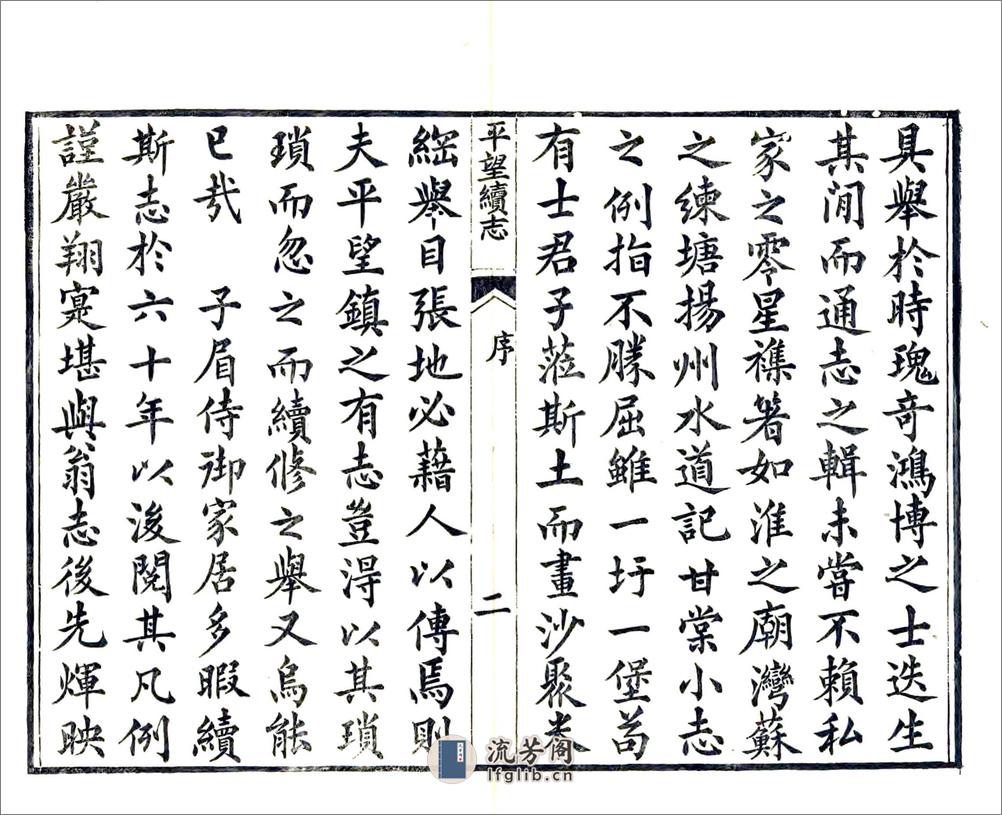 具舉於時瑰奇鴻博之士迭生
其閒而通志之輯未嘗不賴私
家之零星襍著如淮之廟灣蘇
之練塘揚州水道記甘棠小志
之例指不勝屈雖一圩一堡苟
有士君子蒞斯土而畫沙聚米
平望續志
序
二
綱舉目張地必藉人以傳焉則
夫平望鎮之有志豈得以其瑣
瑣而忽之而續修之舉又烏能
已哉 子眉侍御家居多暇續
斯志於六十年以後閱其凡例
謹嚴翔寔堪與翁志後先煇映
流芳阁
lfglib.cn